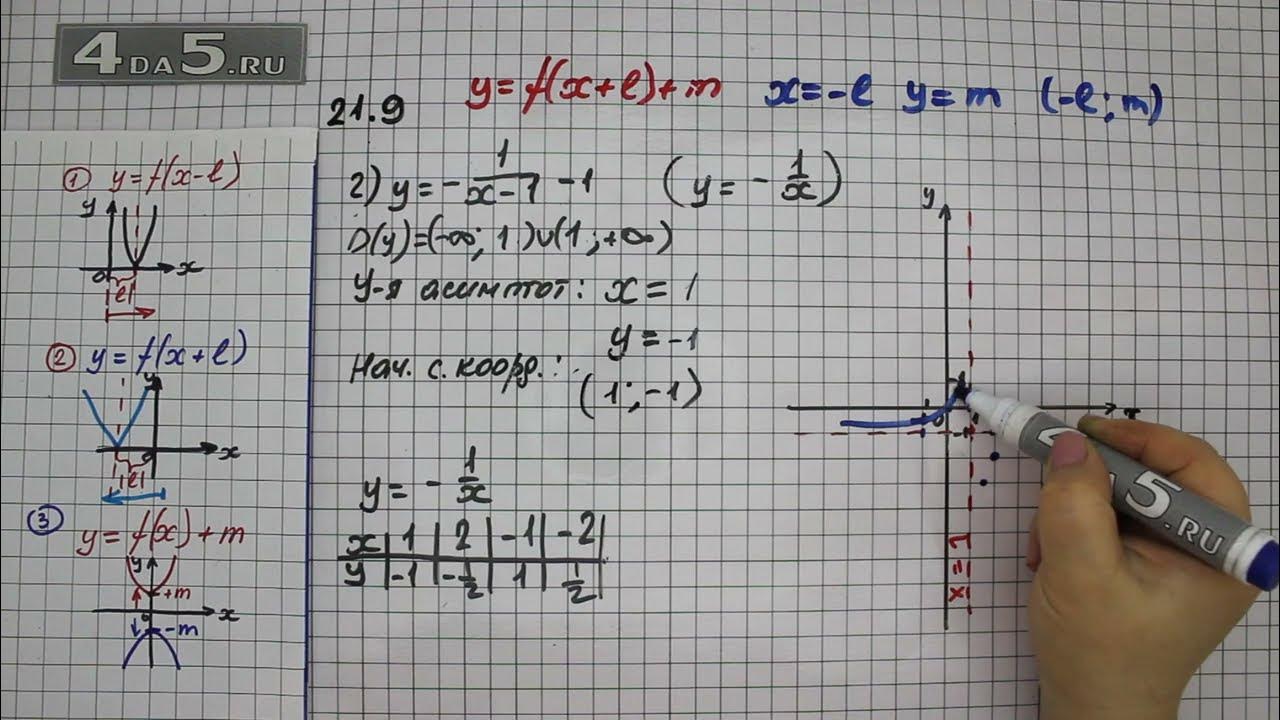 4DA5.RU
21.9
y=f(x+l)+m x=-l y=m (-l;m)
① y=f(x-l)
y
o x
|l|
② y=f(x+l)
y
o x
|l|
③ y=f(x)+m
y
+m
o x
-m
2) y=-1/(x-1) -1 (y=-1/x)
D(y)=(-∞; 1)∪(1;+∞)
Ур-я асимптот: x=1
y=-1
Нач. с. коорд.: (1;-1)
y=-1/x
x | 1 | 2 | -1 | -2 |
y | -1 | -1/2 | 1 | 1/2 |
y
1
o
x
x=1
4 5.RU